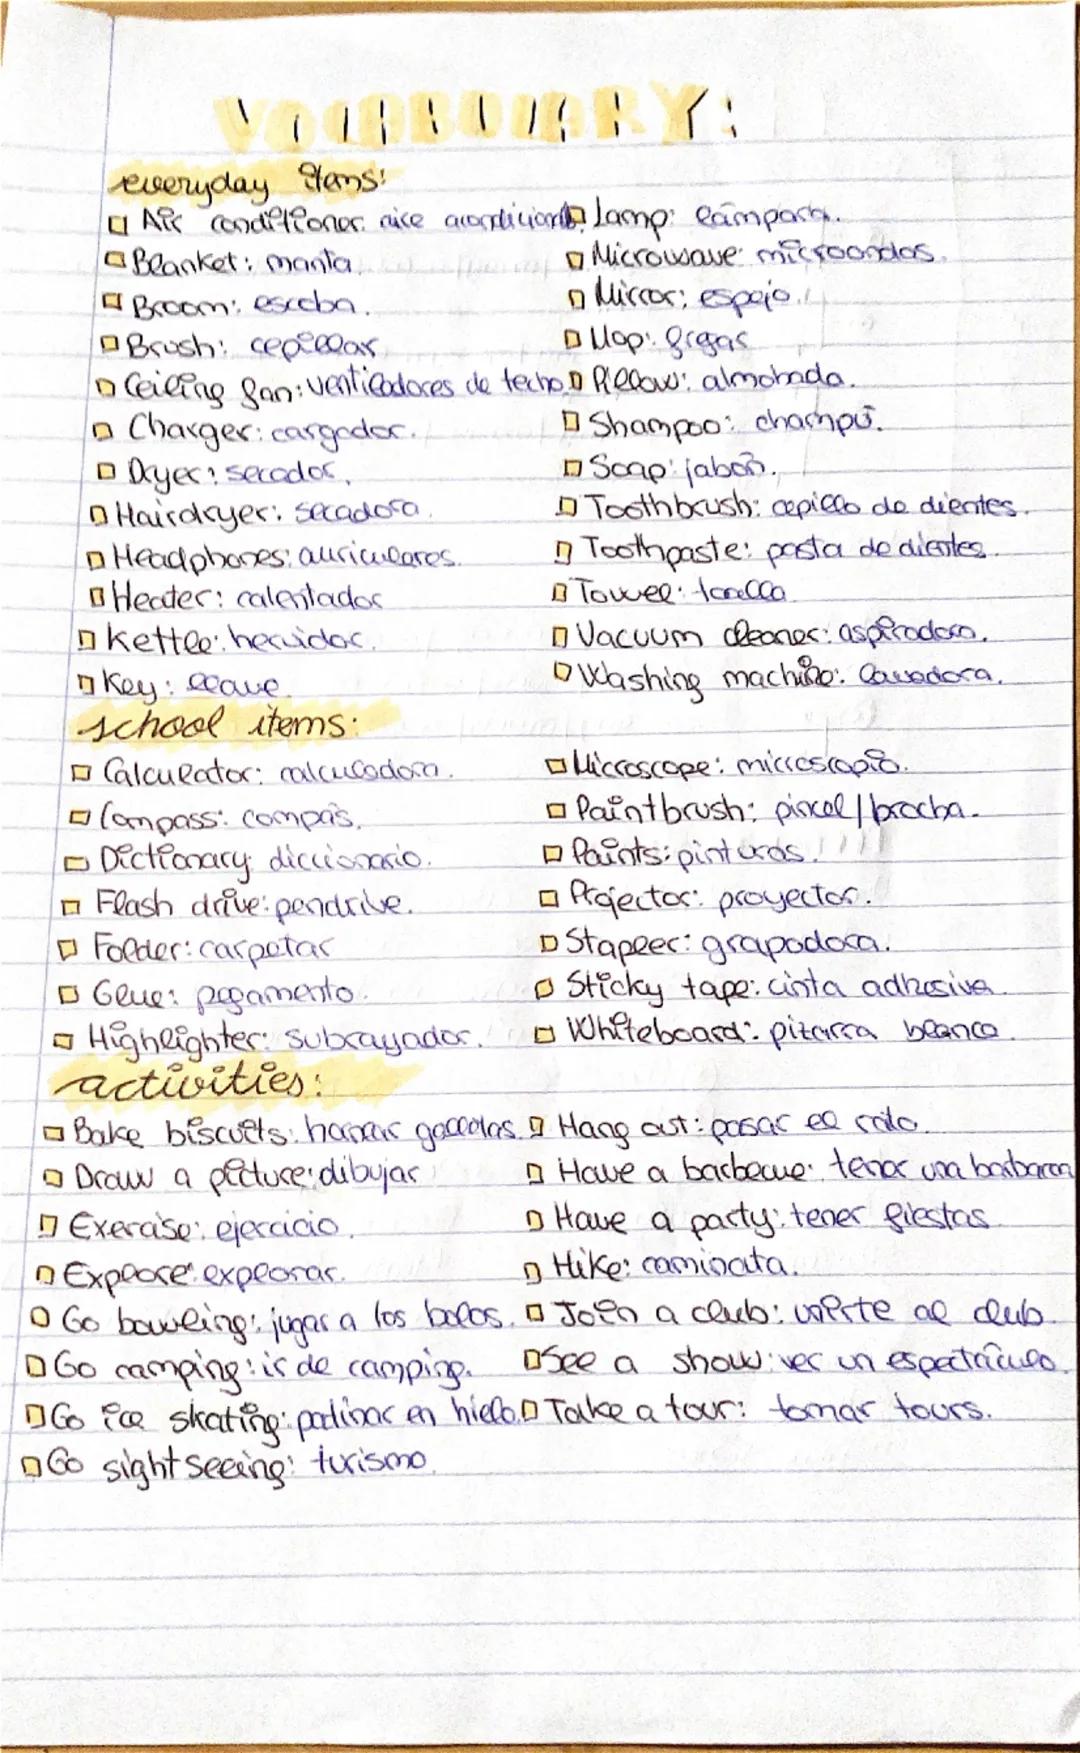 VOCABULARY:
everyday items:
Air conditioner: aire acondicionado
Blanket: manta
Broom: escoba.
Brush: cepillar
Ceiling fan: ventiladores de techo
Charger: cargador.
Dryer: secador.
Hairdryer: secadora.
Headphones: auriculares.
Heater: calentador
Kettle: hervidor.
Key: llave.
Lamp: lámpara.
Microwave: microondas.
Mirror: espejo.
Mop: frgas
Pillow: almohada.
Shampoo: champú.
Soap: jabón.
Toothbrush: cepillo de dientes.
Toothpaste: pasta de dientes.
Towel: toalla
Vacuum cleaner: aspiradora.
Washing machine: lavadora.
school items:
Calculator: calculadora.
Compass: compás.
Dictionary: diccionario.
Flash drive: pendrive.
Folder: carpetar
Glue: pegamento.
Highlighter: subrayador.
Microscope: microscopio.
Paintbrush: pincel/brocha.
Paints: pinturas.
Projector: proyector.
Stapler: grapadora.
Sticky tape: cinta adhesiva.
Whiteboard: pizarra blanca.
activities:
Bake biscuits: galletas.
Draw a picture: dibujar
Exercise: ejercicio.
Explore: explorar.
Go bowling: jugar a los bolos.
Go camping: ir de camping.
Go ice skating: patinar en hielo.
Go sightseeing: turismo.
Hang out: pasar el rato.
Have a barbecue: tener una barbacoa
Have a party: tener fiestas
Hike: caminata.
Join a club: unirte al club.
See a show: ver un espectáculo.
Take a tour: tomar tours.